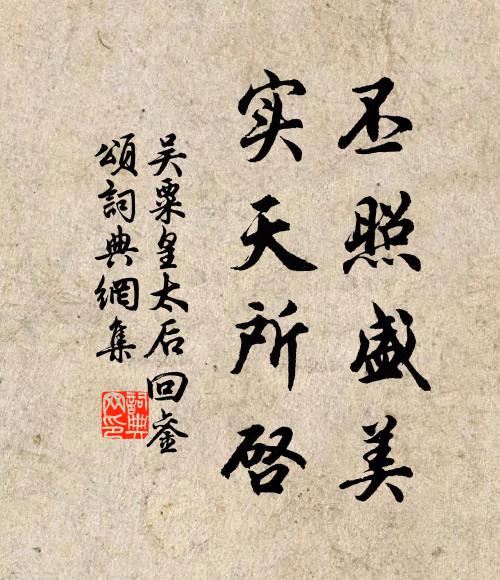 丕照盛美
实天所启
吴粟皇太后回銮
颂词典网集
词典网印